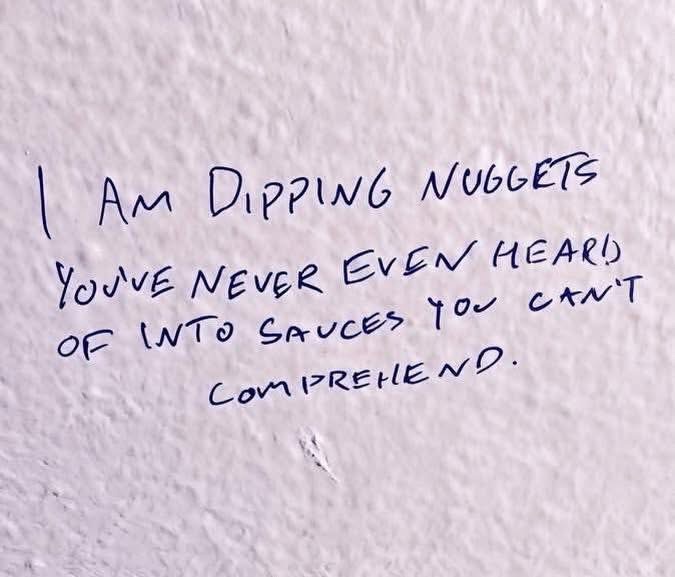 I AM DIPPING NUGGETS
YOU'VE NEVER EVEN HEARD
OF INTO SAUCES YOU CAN'T
COMPREHEND.